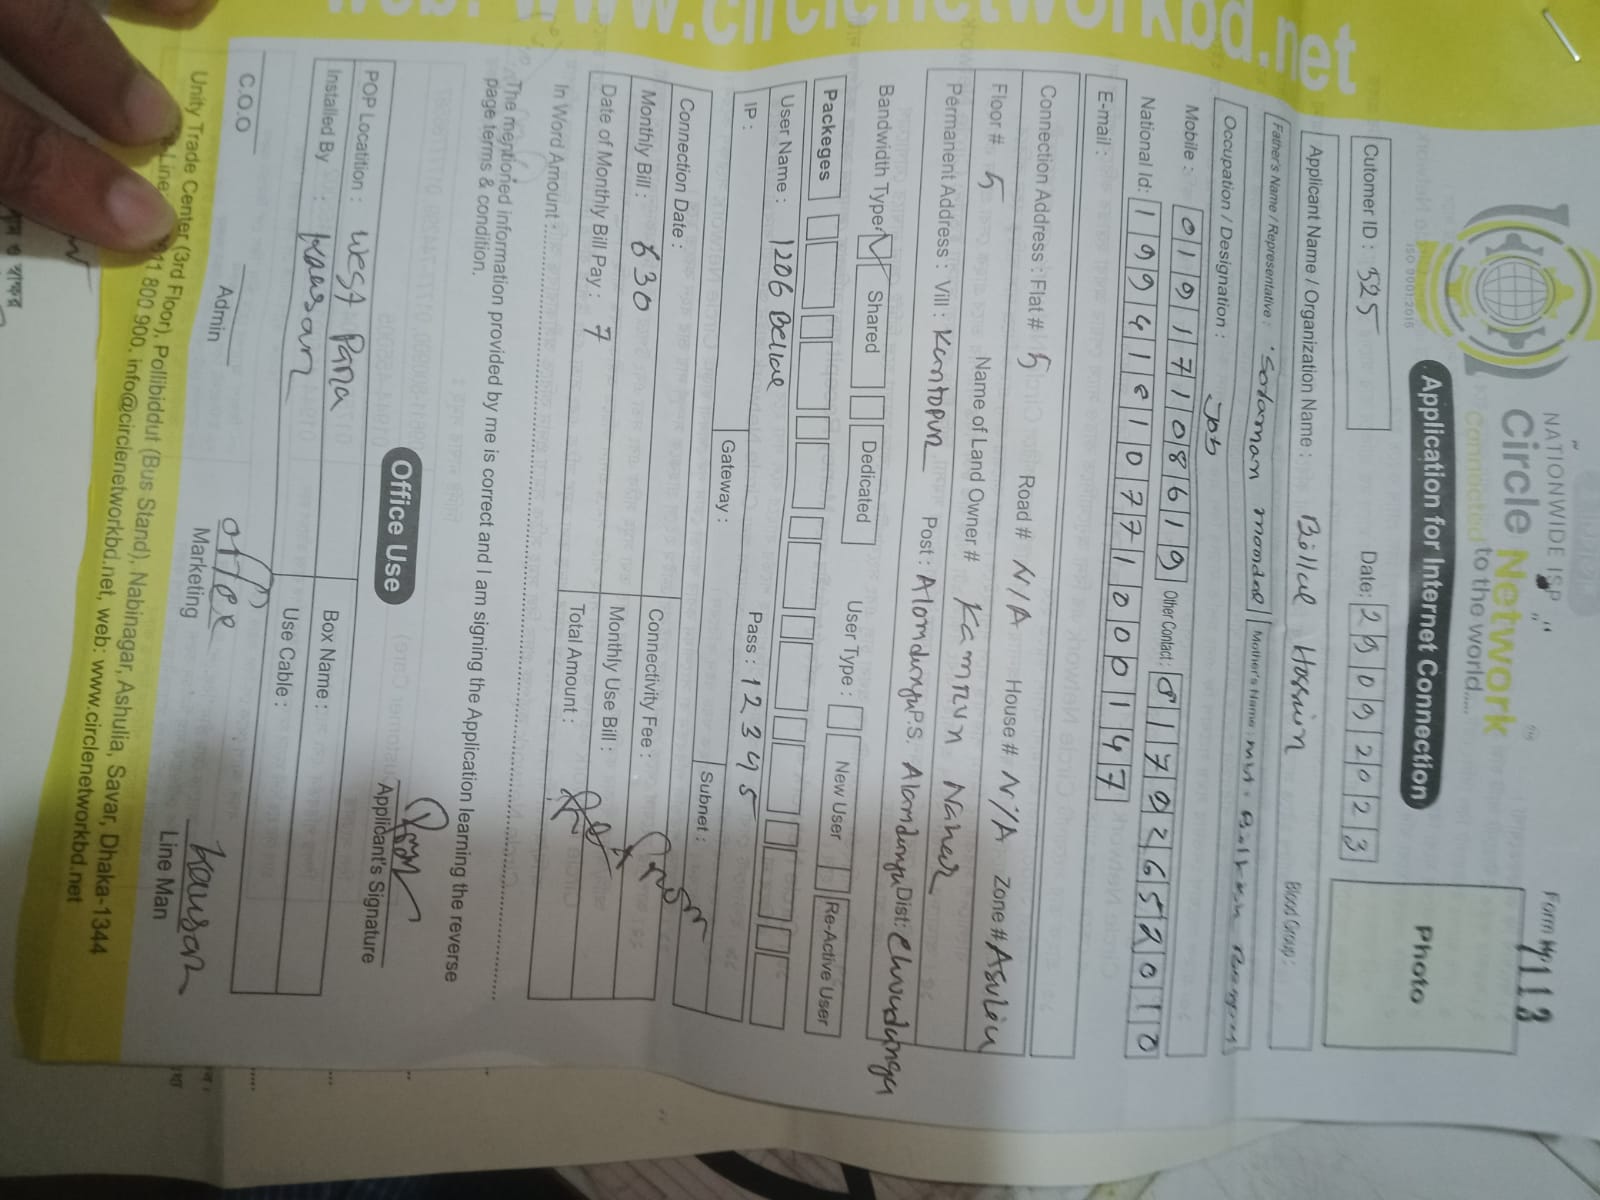 web: www.circlenetworkbd.net
NATIONWIDE ISP
Circle Network
Connected to the world.....
ISO 9001:2015
Form
Application for Internet Connection
Cutomer ID : 525 Date: 25092023
Photo
Applicant Name / Organization Name : Billal Hossion Blood Group :
Father's Name / Representative : Solaman mondal Mother's Name :
Occupation / Designation : Job
Mobile : 01917108619 Other Contact :
National Id: 19941810771000147
E-mail :
Connection Address : Flat # 5 Road # N/A House # N/A Zone # Asuliu
Floor # 5 Name of Land Owner # Kamrun Naher
Permanent Address : Vill : Kuntopur Post : Alomdanga P.S. Alamdanga Dist: Chuadanga
Bandwidth Type: Shared Dedicated User Type : New User Re-Active User
Packeges
User Name : 1206 Bellal Pass : 12345
IP : Gateway : Subnet :
Connection Date :
Monthly Bill : 630 Connectivity Fee :
Date of Monthly Bill Pay : 7 Monthly Use Bill :
In Word Amount : Total Amount :
The mentioned information provided by me is correct and I am signing the Application learning the reverse
page terms & condition.
Applicant's Signature
Office Use
POP Locatition : West Para Box Name :
Installed By : Kausan Use Cable :
Kausan
C.O.O Admin Marketing Line Man
Unity Trade Center (3rd Floor), Pollibiddut (Bus Stand), Nabinagar, Ashulia, Savar, Dhaka-1344
800 900. info@circlenetworkbd.net, web: www.circlenetworkbd.net